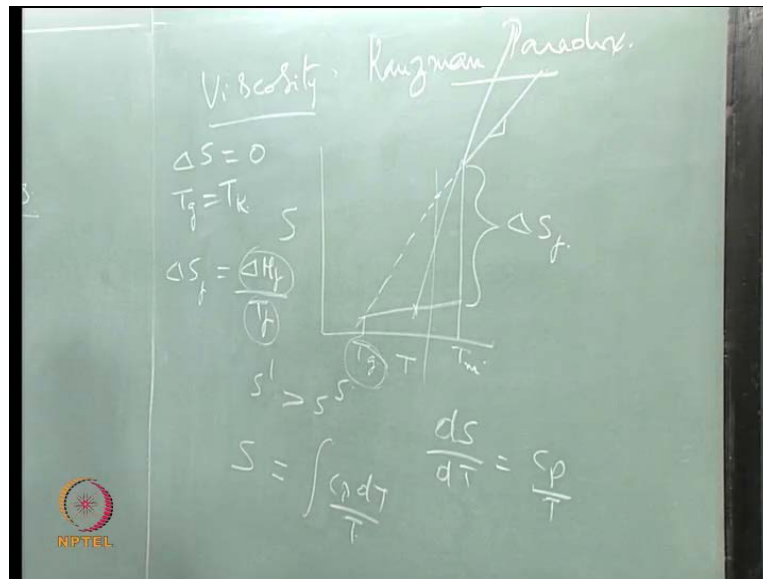 Viscosity, Kauzman Paradox.
ΔS = 0
Tg = Tk.
S
ΔSf.
ΔSf = ΔHf / Tf
Tg T Tm
S^l > S^s
S = ∫ Cp dT / T
dS / dT = Cp / T
NPTEL